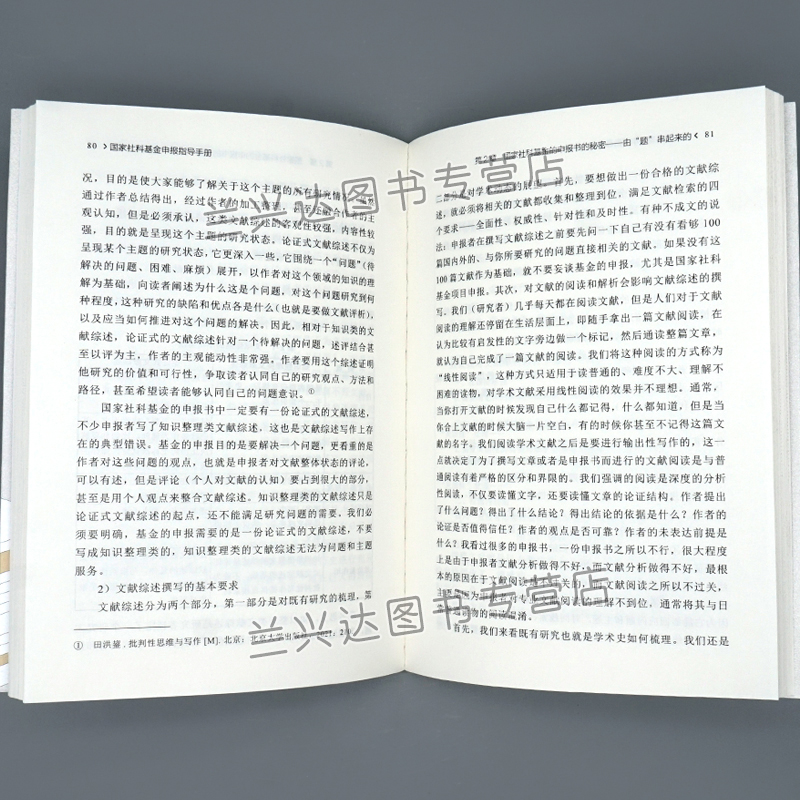 80 > 国家社科基金申报指导手册
况，目的是使大家能够了解关于这个主题的所有研究情况。虽然
通过作者总结得出，经过作者的加工整理，甚至还融合作者的主
观认知，但是必须承认，这类文献综述的客观性较强，内容性较
强，目的就是呈现这个主题的研究状态。论证式文献综述不仅为
呈现某个主题的研究状态，它更深入一些，它围绕一个“问题”（待
解决的问题、困难、麻烦）展开，以作者对这个领域的知识的理
解为基础，向读者阐述为什么这是个问题，对这个问题研究到何
种程度，这种研究的缺陷和优点各是什么（也就是要做文献评析），
以及应当如何推进对这个问题的解决。因此，相对于知识类的文
献综述，论证式的文献综述针对一个待解决的问题，述评结合甚
至以评为主，作者的主观能动性非常强。作者要用这个综述证明
他研究的价值和可行性，争取读者认同自己的研究观点、方法和
路径，甚至希望读者能够认同自己的问题意识。①
国家社科基金的申报书中一定要有一份论证式的文献综述，
不少申报者写了知识整理类文献综述，这也是文献综述写作上存
在的典型错误。基金的申报目的是要解决一个问题，更看重的是
作者对这些问题的观点，也就是申报者对文献整体状态的评论，
可以有述，但是评论（个人对文献的认知）要占到很大的部分，
甚至是用个人观点来整合文献综述。知识整理类的文献综述只是
论证式文献综述的起点，还不能满足研究问题的需要。我们必
须要明确，基金的申报需要的是一份论证式的文献综述，不要
写成知识整理类的，知识整理类的文献综述无法为问题和主题
服务。
2）文献综述撰写的基本要求
文献综述分为两个部分，第一部分是对既有研究的梳理，第
① 田洪鋆．批判性思维与写作 [M]. 北京：北京大学出版社，2021：2
国家社科基金的申报书的秘密——由“题”串起来的 < 81
对学术动态的展望。首先，要想做出一份合格的文献综
述，就必须将相关的文献都收集和整理到位，满足文献检索的四
个要求——全面性、权威性、针对性和及时性。有种不成文的说
法：申报者在撰写文献综述之前要先问一下自己有没有看够 100
篇国内外的、与你所要研究的问题直接相关的文献。如果没有这
100 篇文献作为基础，就不要妄谈基金的申报，尤其是国家社科
基金项目申报。其次，对文献的阅读和解析会影响文献综述的撰
写。我们（研究者）几乎每天都在阅读文献，但是人们对于文献
阅读的理解还停留在生活层面上，即随手拿出一篇文献阅读，在
认为比较有启发性的文字旁边做一个标记，然后通读整篇文章，
就认为自己完成了一篇文献的阅读。我们将这种阅读的方式称为
“线性阅读”，这种方式只适用于读普通的、难度不大、理解不
困难的读物，对学术文献采用线性阅读的效果并不理想。通常，
当你打开文献的时候发现自己什么都记得，什么都知道，但是当
你合上文献的时候大脑一片空白，有的时候你甚至不记得这篇文
献的名字。我们阅读学术文献之后是要进行输出性写作的，这一
点就决定了为了撰写文章或者是申报书而进行的文献阅读是与普
通阅读有着严格的区分和界限的。我们强调的阅读是深度的分析
性阅读，不仅要读懂文字，还要读懂文章的论证结构。作者提出
了什么问题？得出了什么结论？得出结论的依据是什么？作者的
论证是否值得信任？作者的观点是否可靠？作者的未表达前提是
什么？我看过很多的申报书，一份申报书之所以不行，很大程度
上是由于申报者文献分析做得不好，而文献分析做得不好，最根
本的原因在于文献阅读是不过关的，而文献阅读之所以不过关，
对专业文献阅读的理解不到位，通常将其与日
读物的阅读混淆。
首先，我们来看既有研究也就是学术史如何梳理。我们还是
兰兴达图书专营店
兰兴达图书专营店